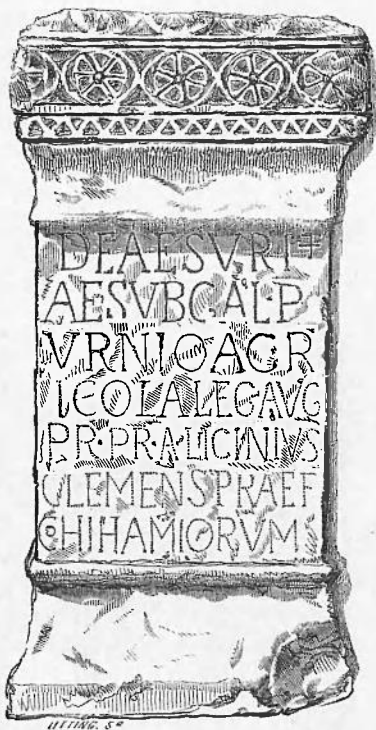 DEAESVRI
AESVBCALP
VRNIOAGR
ICOLALEGAVG
PR·PRA·LICINIVS
CLEMENSPRAEF
COHIHAMIORVM
UTTING. Sc